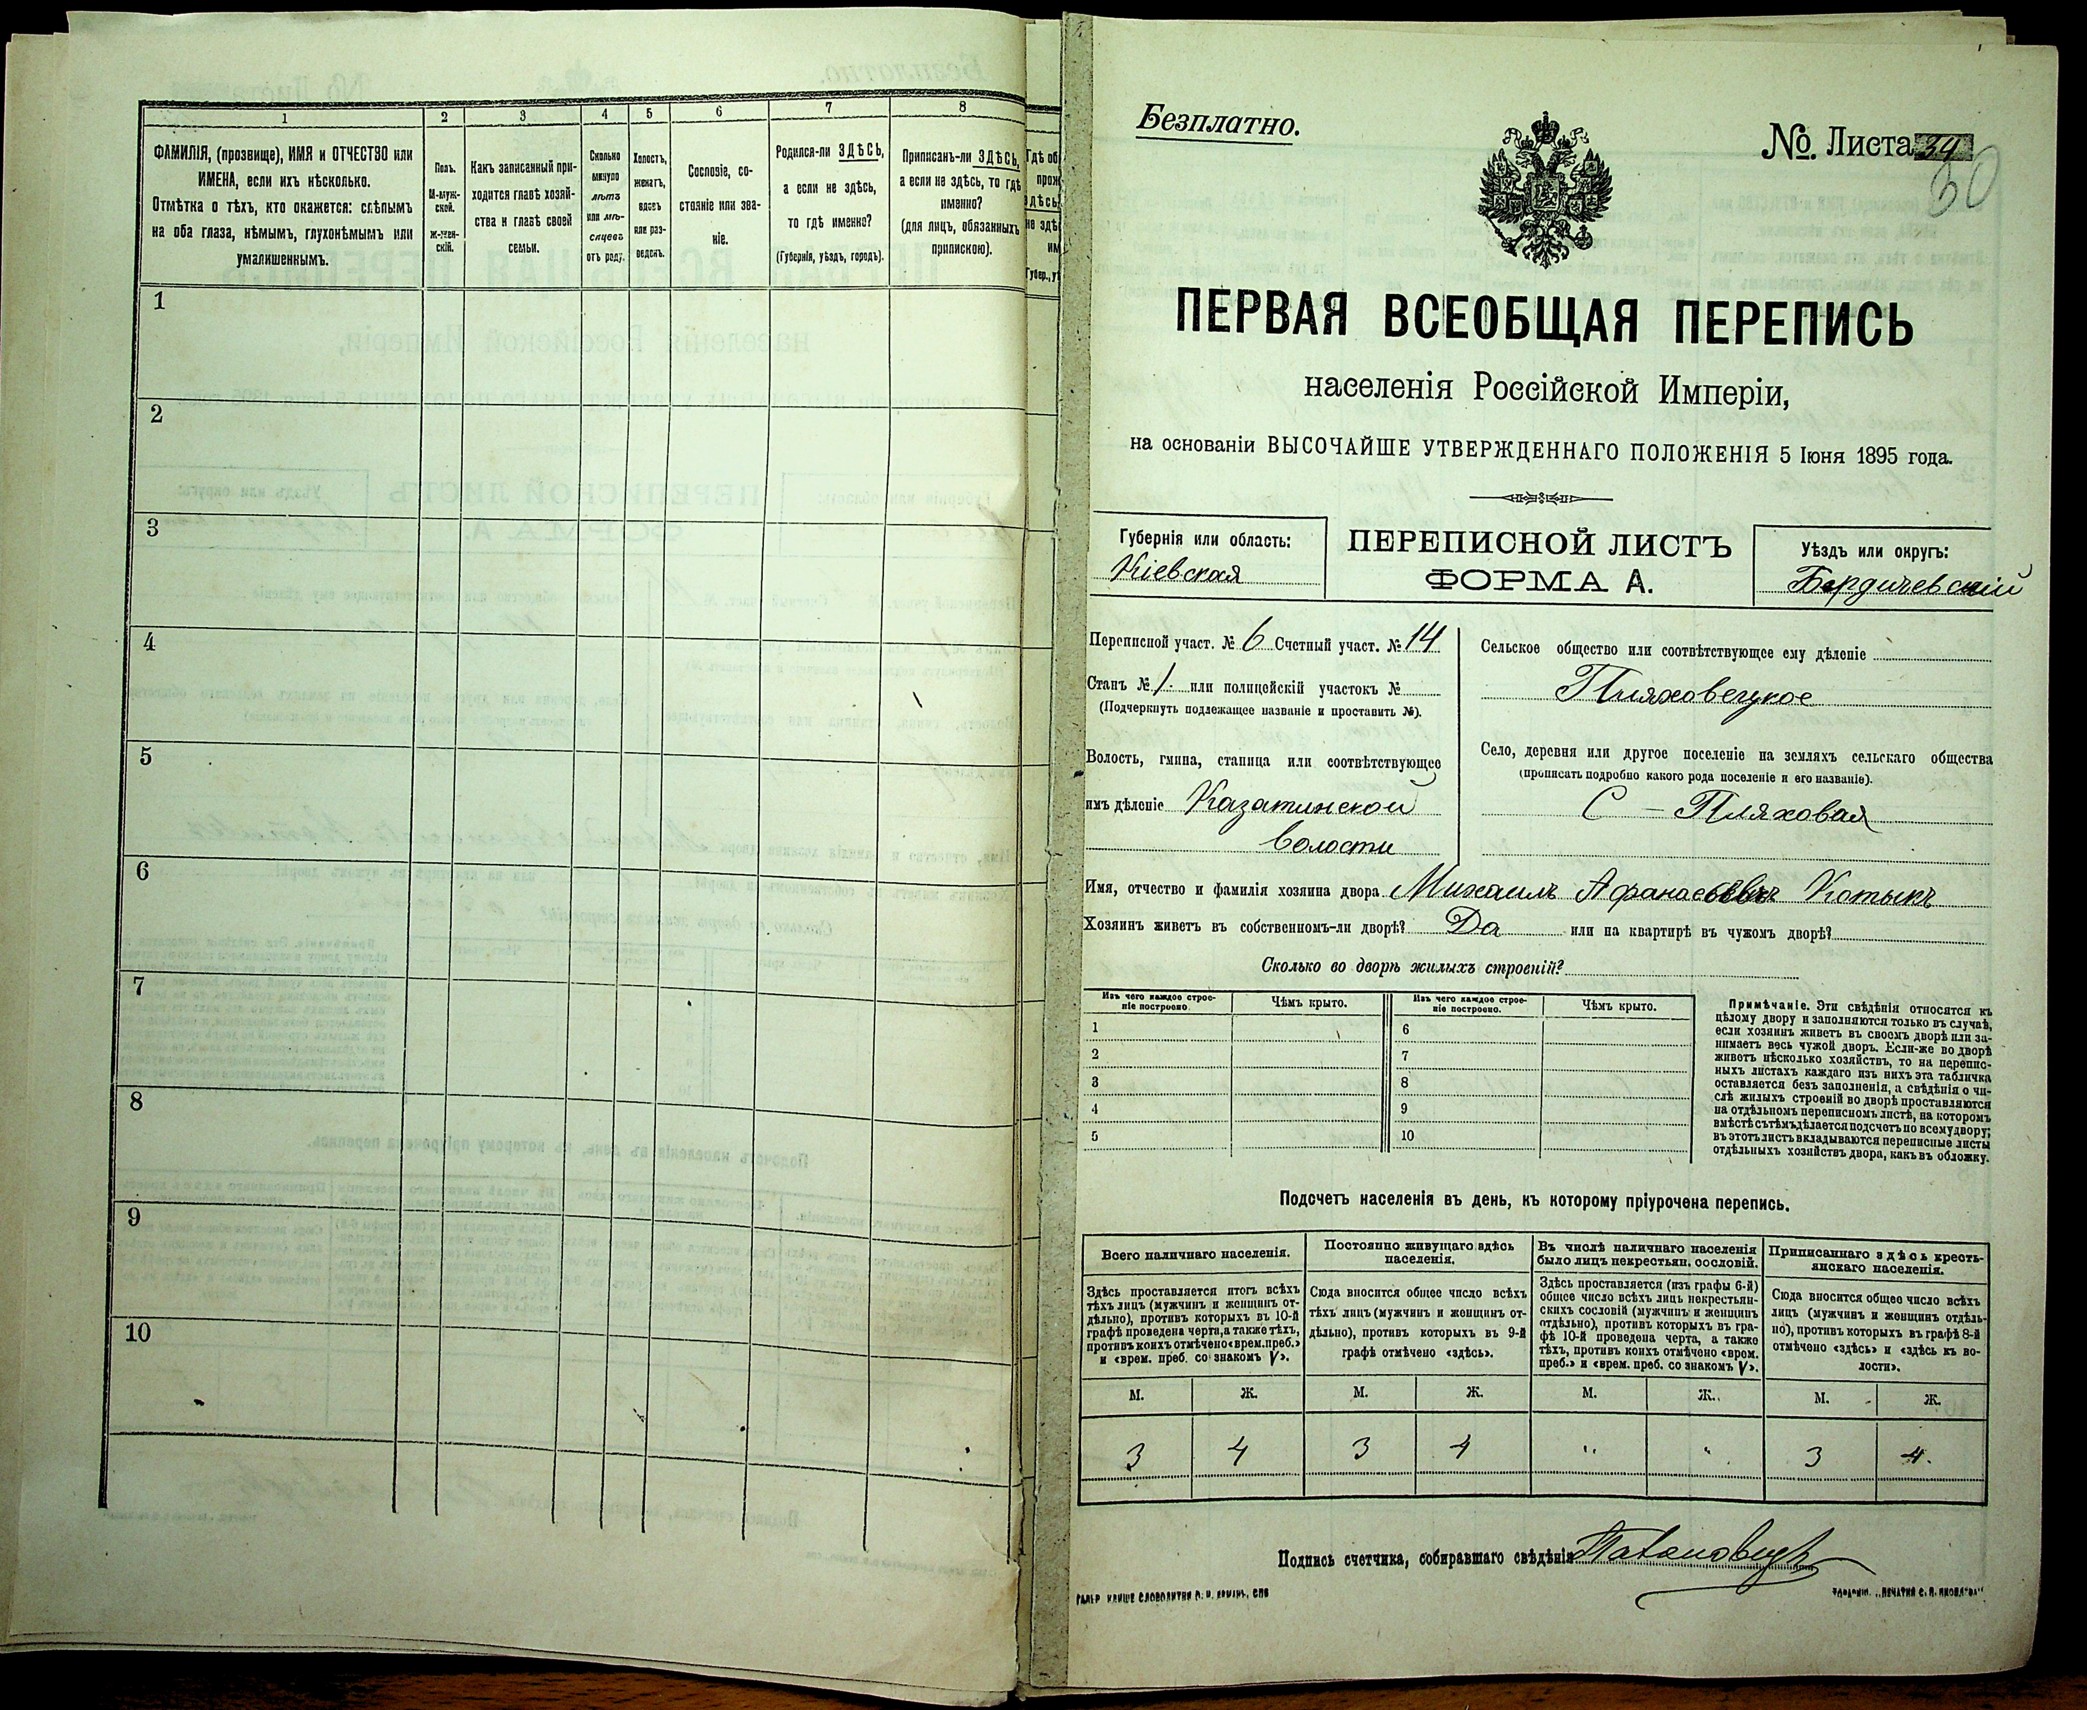 1 2 3 4 5 6 7 8
ФАМИЛІЯ, (прозвище), ИМЯ и ОТЧЕСТВО или
ИМЕНА, если ихъ нѣсколько.
Отмѣтка о тѣхъ, кто окажется: слѣпымъ
на оба глаза, нѣмымъ, глухонѣмымъ или
умалишеннымъ.
Полъ.
М-муж-
ской.
ж-жен-
скій.
Какъ записанный при-
ходится главѣ хозяй-
ства и главѣ своей
семьи.
Сколько
минуло
лѣтъ
или мѣ-
сяцевъ
отъ роду.
Холостъ,
женатъ,
вдовъ
или раз-
веденъ.
Сословіе, со-
стояніе или зва-
ніе.
Родился-ли ЗДѢСЬ,
а если не здѣсь,
то гдѣ именно?
(Губернія, уѣздъ, городъ).
Приписанъ-ли ЗДѢСЬ,
а если не здѣсь, то гдѣ
именно?
(для лицъ, обязанныхъ
припискою).
1
2
3
4
5
6
7
8
9
10
Безплатно.
№ Листа 34
30
ПЕРВАЯ ВСЕОБЩАЯ ПЕРЕПИСЬ
населенія Россійской Имперіи,
на основаніи ВЫСОЧАЙШЕ УТВЕРЖДЕННАГО ПОЛОЖЕНІЯ 5 Іюня 1895 года.
Губернія или область:
Кіевская
ПЕРЕПИСНОЙ ЛИСТЪ
ФОРМА А.
Уѣздъ или округъ:
Бердичевскій
Переписной участ. № 6 Счетный участ. № 14
Станъ № 1. или полицейскій участокъ №
(Подчеркнуть подлежащее названіе и проставить №).
Волость, гмина, станица или соотвѣтствующее
имъ дѣленіе Казатинской
волости
Сельское общество или соотвѣтствующее ему дѣленіе
Пляховецкое
Село, деревня или другое поселеніе на земляхъ сельскаго общества
(прописать подробно какого рода поселеніе и его названіе).
С – Пляховая
Имя, отчество и фамилія хозяина двора Михаилъ Афанасьевъ Котыкъ
Хозяинъ живетъ въ собственномъ-ли дворѣ? Да или на квартирѣ въ чужомъ дворѣ?
Сколько во дворѣ жилыхъ строеній?
Изъ чего каждое строе-
ніе построено
Чѣмъ крыто.
Изъ чего каждое строе-
ніе построено.
Чѣмъ крыто.
1 6
2 7
3 8
4 9
5 10
Примѣчаніе. Эти свѣдѣнія относятся къ
цѣлому двору и заполняются только въ случаѣ,
если хозяинъ живетъ въ своемъ дворѣ или за-
нимаетъ весь чужой дворъ. Если-же во дворѣ
живетъ нѣсколько хозяйствъ, то на перепис-
ныхъ листахъ каждаго изъ нихъ эта табличка
оставляется безъ заполненія, а свѣдѣнія о чи-
слѣ жилыхъ строеній во дворѣ проставляются
на отдѣльномъ переписномъ листѣ, на которомъ
вмѣстѣ съ тѣмъ дѣлается подсчетъ по всему двору;
въ этотъ листъ вкладываются переписные листы
отдѣльныхъ хозяйствъ двора, какъ въ обложку.
Подсчетъ населенія въ день, къ которому пріурочена перепись.
Всего наличнаго населенія.
Здѣсь проставляется итогъ всѣхъ
тѣхъ лицъ (мужчинъ и женщинъ от-
дѣльно), противъ которыхъ въ 10-й
графѣ проведена черта, а также тѣхъ,
противъ коихъ отмѣчено «врем. преб.»
и «врем. преб. со знакомъ V».
Постоянно живущаго здѣсь
населенія.
Сюда вносится общее число всѣхъ
тѣхъ лицъ (мужчинъ и женщинъ от-
дѣльно), противъ которыхъ въ 9-й
графѣ отмѣчено «здѣсь».
Въ числѣ наличнаго населенія
было лицъ некрестьян. сословій.
Здѣсь проставляется (изъ графы 6-й)
общее число всѣхъ лицъ некрестьян-
скихъ сословій (мужчинъ и женщинъ
отдѣльно), противъ которыхъ въ гра-
фѣ 10-й проведена черта, а также
тѣхъ, противъ коихъ отмѣчено «врем.
преб.» и «врем. преб. со знакомъ V».
Приписаннаго здѣсь кресть-
янскаго населенія.
Сюда вносится общее число всѣхъ
лицъ (мужчинъ и женщинъ отдѣль-
но), противъ которыхъ въ графѣ 8-й
отмѣчено «здѣсь» и «здѣсь къ во-
лости».
М. Ж. М. Ж. М. Ж. М. Ж.
3 4 3 4 " " 3 4.
Подпись счетчика, собиравшаго свѣдѣнія